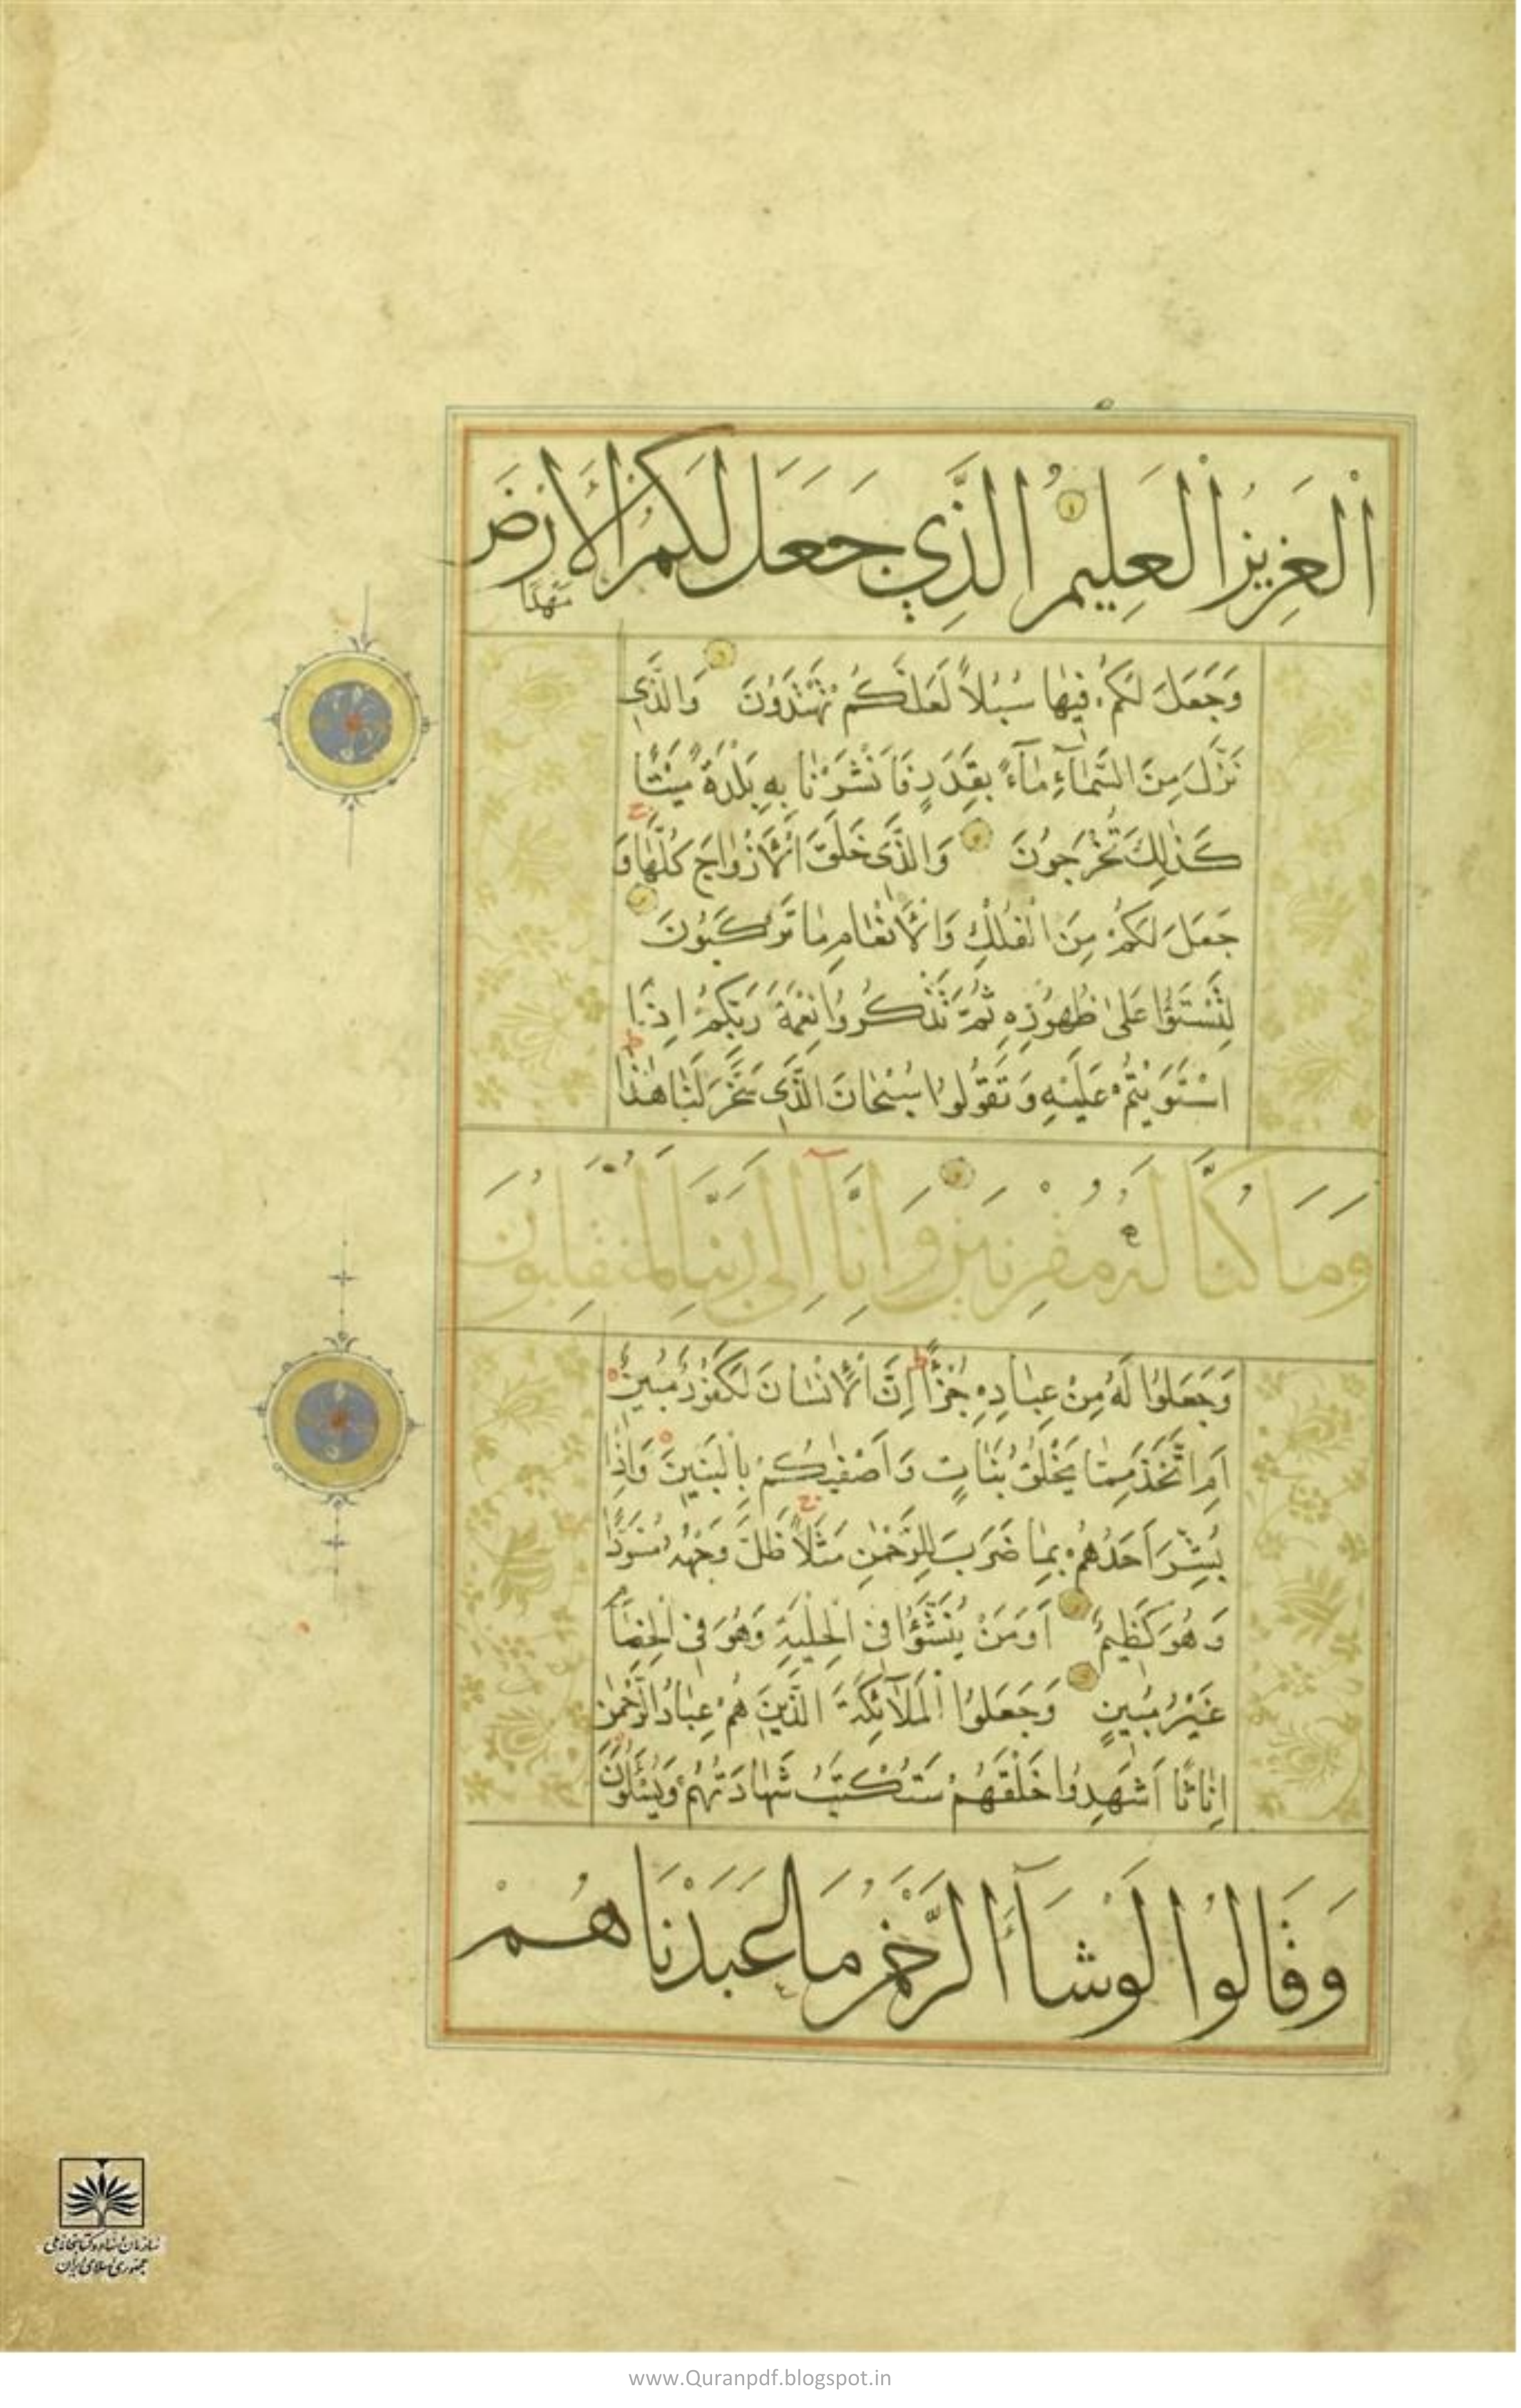 الْعَزِيزُ الْعَلِيمُ الَّذِي جَعَلَ لَكُمُ الْأَرْضَ
مَهْدًا
وَجَعَلَ لَكُمْ فِيهَا سُبُلًا لَعَلَّكُمْ تَهْتَدُونَ وَالَّذِى
نَزَّلَ مِنَ السَّمَآءِ مَآءً بِقَدَرٍ فَاَنْشَرْنَا بِهِ بَلْدَةً مَيْتًا
كَذٰلِكَ تُخْرَجُونَ وَالَّذِى خَلَقَ الْاَزْوَاجَ كُلَّهَا وَ
جَعَلَ لَكُمْ مِنَ الْفُلْكِ وَالْاَنْعَامِ مَا تَرْكَبُونَ
لِتَسْتَوُا عَلىٰ ظُهُورِهِ ثُمَّ تَذْكُرُوا نِعْمَةَ رَبِّكُمْ اِذَا
اسْتَوَيْتُمْ عَلَيْهِ وَتَقُولُوا سُبْحَانَ الَّذِى سَخَّرَ لَنَا هٰذَا
وَمَا كُنَّا لَهُ مُقْرِنِينَ وَاِنَّآ اِلَى رَبِّنَا لَمُنْقَلِبُونَ
وَجَعَلُوا لَهُ مِنْ عِبَادِهِ جُزْأً اِنَّ الْاِنْسَانَ لَكَفُورٌ مُبِينٌ
اَمِ اتَّخَذَ مِمَّا يَخْلُقُ بَنَاتٍ وَاَصْفٰيكُمْ بِالْبَنِينَ وَاِذَا
بُشِّرَ اَحَدُهُمْ بِمَا ضَرَبَ لِلرَّحْمٰنِ مَثَلًا ظَلَّ وَجْهُهُ مُسْوَدًّا
وَهُوَ كَظِيمٌ اَوَمَنْ يُنَشَّؤُا فِى الْحِلْيَةِ وَهُوَ فِى الْخِصَامِ
غَيْرُ مُبِينٍ وَجَعَلُوا الْمَلَآئِكَةَ الَّذِينَ هُمْ عِبَادُ الرَّحْمٰنِ
اِنَاثًا اَشَهِدُوا خَلْقَهُمْ سَتُكْتَبُ شَهَادَتُهُمْ وَيُسْئَلُونَ
وَقَالُوا لَوْ شَآءَ الرَّحْمٰنُ مَا عَبَدْنَاهُمْ
سازمان اسناد و کتابخانه ملی
جمهوری اسلامی ایران
www.Quranpdf.blogspot.in